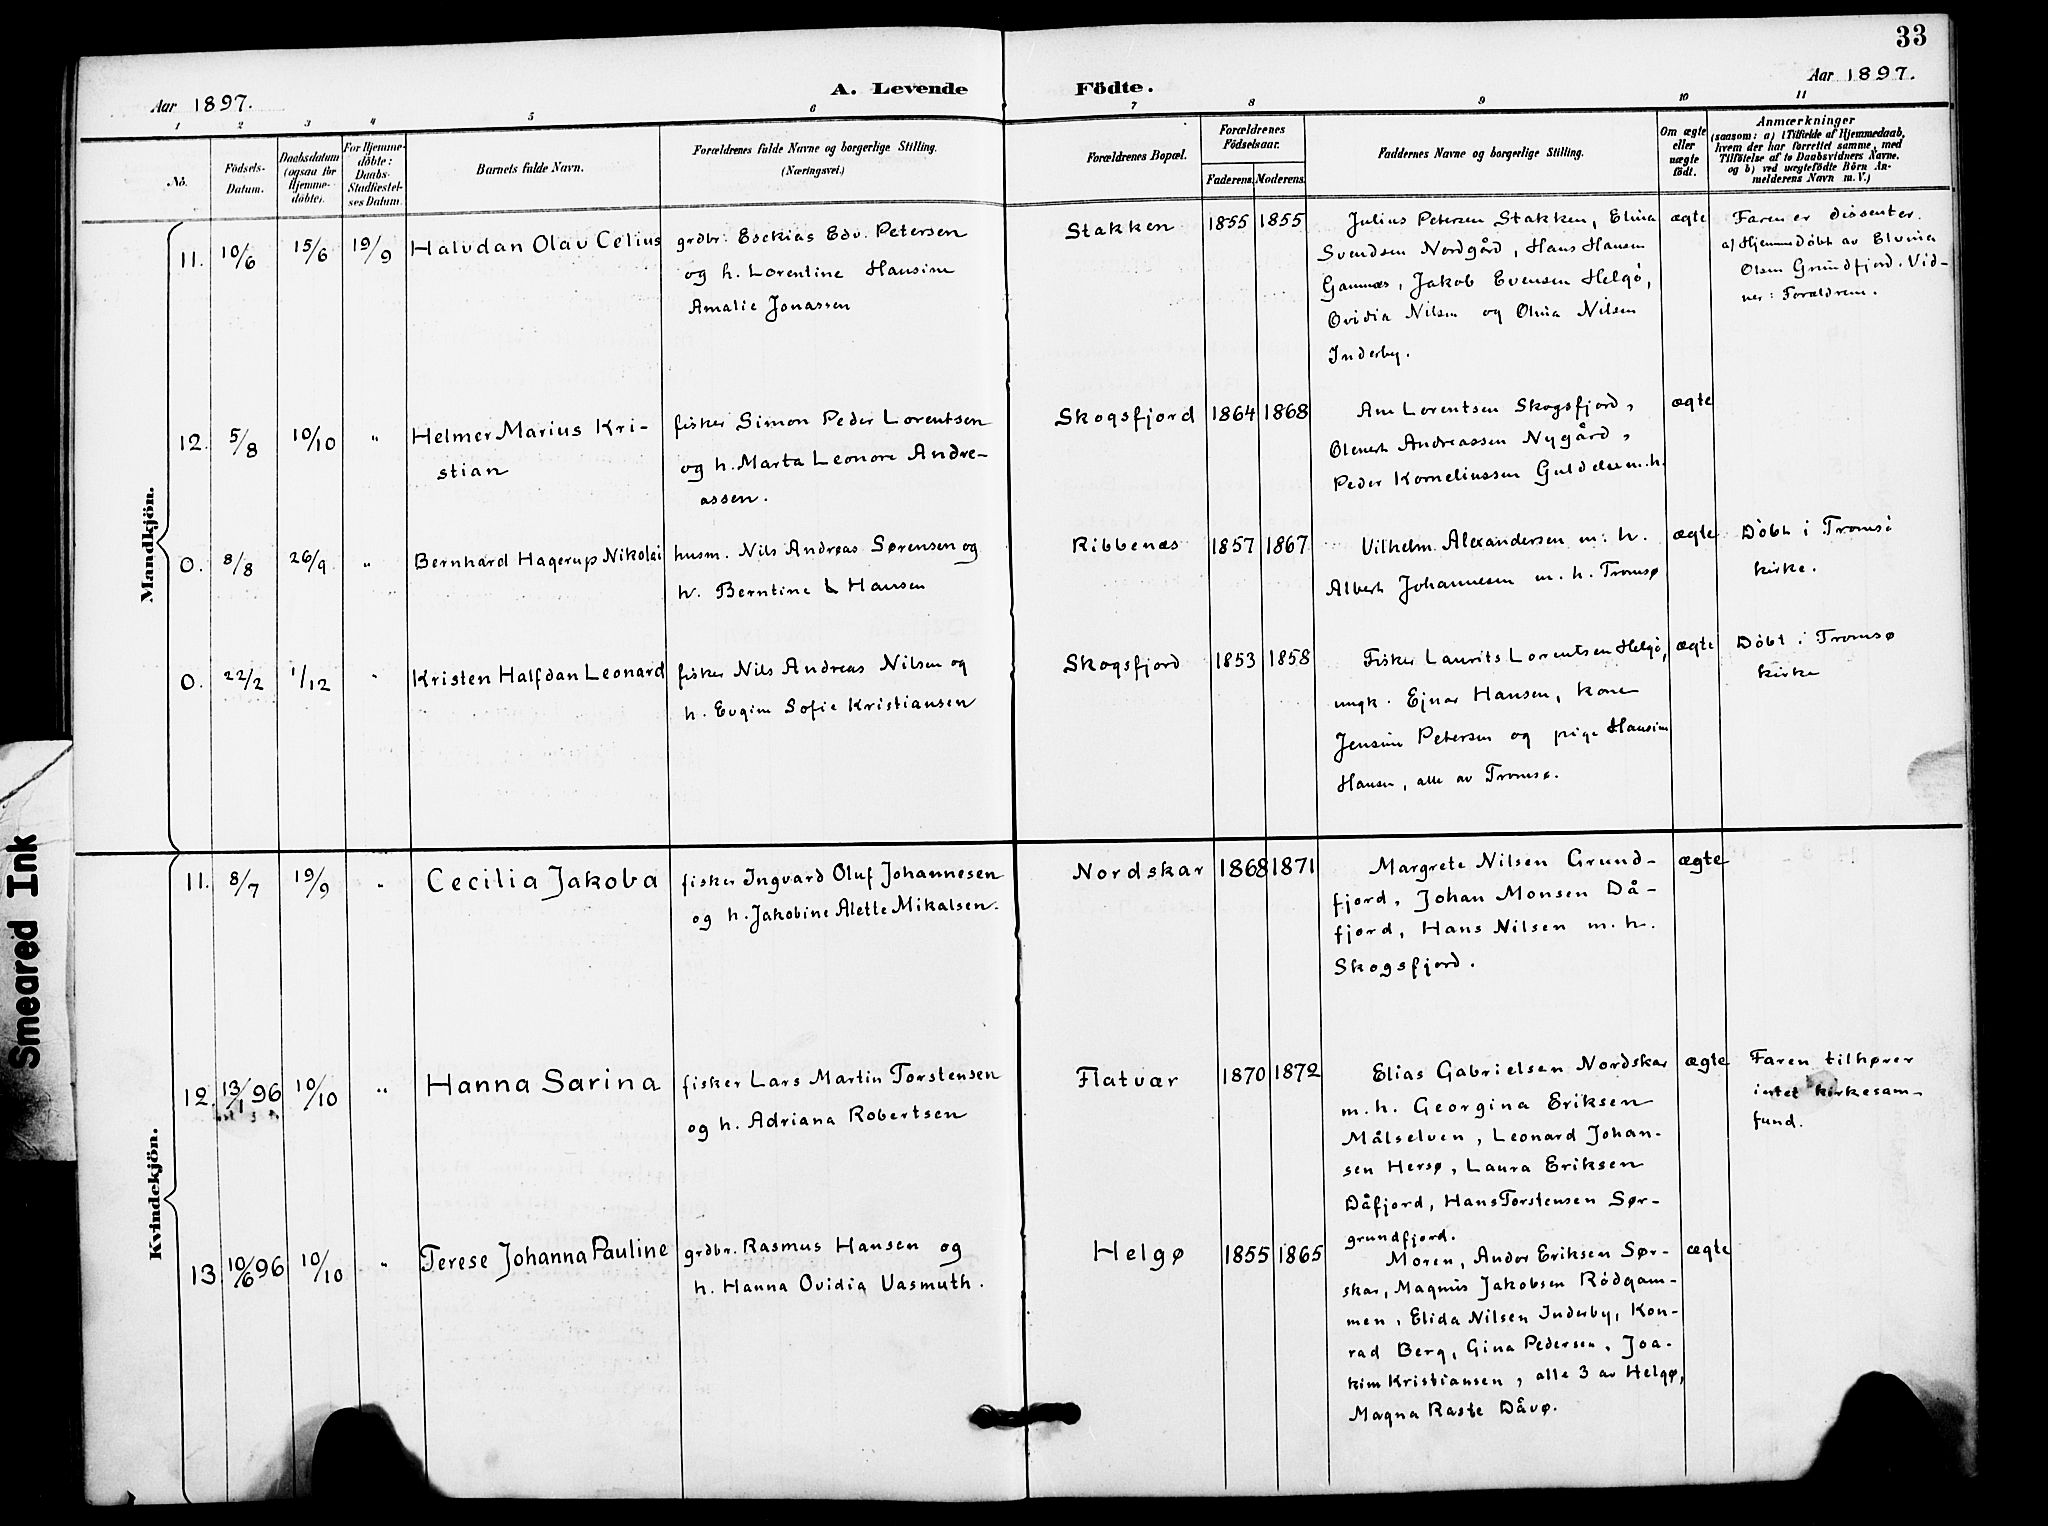 33
Aar 1897.
A. Levende Födte.
Aar 1897.
1 2 3 4 5 6 7 8 9 10 11
No.
Födsels-
Datum.
Daabsdatum
(ogsaa for
Hjemme-
döbte).
For Hjemme-
döbte:
Daabs-
Stadfæstel-
ses Datum.
Barnets fulde Navn.
Forældrenes fulde Navne og borgerlige Stilling.
(Næringsvei.)
Forældrenes Bopæl.
Forældrenes
Födselsaar.
Faderens. Moderens.
Faddernes Navne og borgerlige Stilling.
Om ægte
eller
uægte
födt.
Anmærkninger
(saasom: a) i Tilfælde af Hjemmedaab,
hvem der har forrettet samme, med
Tilföielse af to Daabsvidners Navne.
og b) ved uægtefödte Börn An-
melderens Navn m. V.)
Mandkjön.
11. 10/6 15/6 19/9 Halvdan Olav Celius
grdbr. Esekias Edv. Petersen
og h. Lorentine Hansine
Amalie Jonassen
Stakken 1855 1855
Julius Petersen Stakken, Elina
Svendsen Nordgård, Hans Hansen
Gamnæs, Jakob Evensen Helgö,
Ovidia Nilsen og Olina Nilsen
Inderby.
ægte
Faren er dissenter.
a/ Hjemmedöbt av Elvina
Olsen Grundfjord. Vid-
ner: Forældrene.
12. 5/8 10/10 " Helmer Marius Kri-
stian
fisker Simon Peder Lorentsen
og h. Marta Leonore Andre-
assen.
Skogsfjord 1864 1868
Ane Lorentsen Skogsfjord,
Olenert Andreassen Nygård,
Peder Korneliussen Guldelv m.h.
ægte
0. 8/8 26/9 " Bernhard Hagerup Nikolai
husm. Nils Andreas Sørensen og
h. Berntine L Hansen
Ribbenæs 1857 1867
Vilhelm Alexandersen m. h.
Albert Johannesen m. h. Tromsø
ægte
Döbt i Tromsö
kirke.
0. 22/2 1/12 " Kristen Halfdan Leonard
fisker Nils Andreas Nilsen og
h. Evgine Sofie Kristiansen
Skogsfjord 1853 1858
Fisker Laurits Lorentsen Helgö,
ungk. Ejnar Hansen, kone
Jensine Petersen og pige Hansine
Hansen, alle av Tromsø.
ægte
Döbt i Tromsø
kirke
Kvindekjön.
11. 8/7 19/9 " Cecilia Jakoba
fisker Ingvard Oluf Johannesen
og h. Jakobine Alette Mikalsen.
Nordskar 1868 1871
Margrete Nilsen Grund-
fjord, Johan Monsen Då-
fjord, Hans Nilsen m. h.
Skogsfjord.
ægte
12. 13/1 96 10/10 " Hanna Sarina
fisker Lars Martin Torstensen
og h. Adriana Robertsen
Flatvær 1870 1872
Elias Gabrielsen Nordskar
m. h. Georgina Eriksen
Målselven, Leonard Johan-
sen Hersø, Laura Eriksen
Dåfjord, Hans Torstensen Sør-
grundfjord.
ægte
Faren tilhører
intet kirkesam-
fund.
13 10/6 96 10/10 " Terese Johanna Pauline
grdbr. Rasmus Hansen og
h. Hanna Ovidia Vasmuth.
Helgø 1855 1865
Moren, Andor Eriksen Sør-
skar, Magnus Jakobsen Rödgam-
men, Elida Nilsen Inderby, Kon-
rad Berg, Gina Pedersen, Joa-
kim Kristiansen, alle 3 av Helgø,
Magna Raste Dåvø.
ægte
Smeared Ink